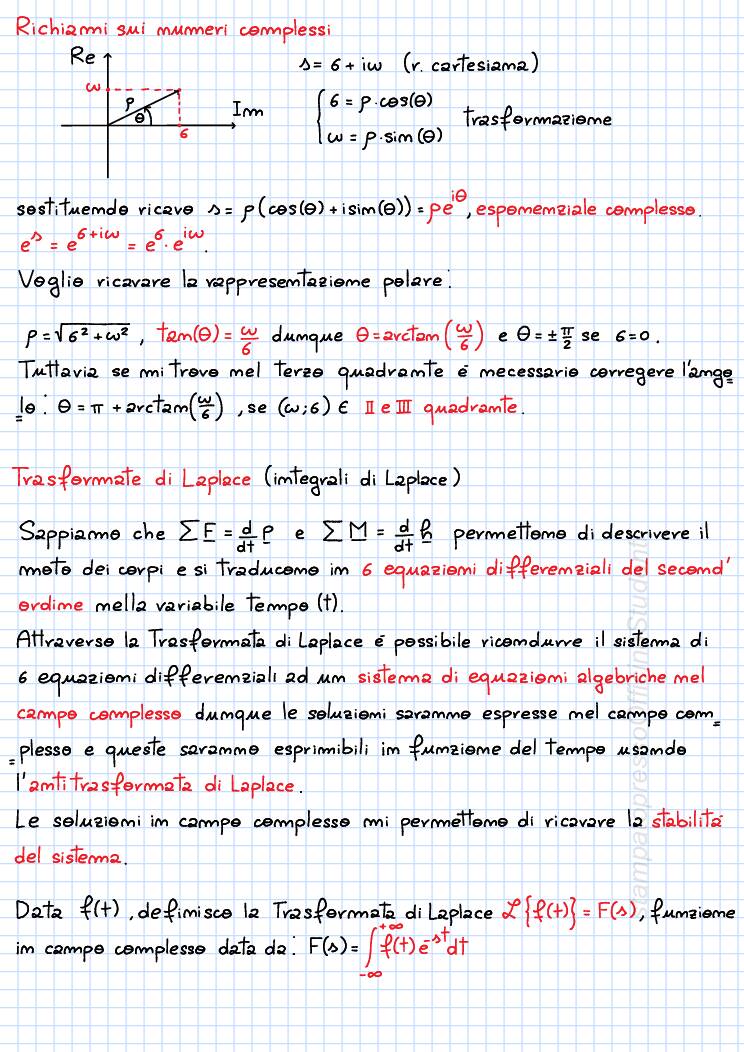 Richiami sui numeri complessi
Re
ω
ρ
θ
Im
σ
s = σ + iω (r. cartesiana)
{ σ = ρ·cos(θ)
ω = ρ·sin(θ)
trasformazione
sostituendo ricavo s = ρ(cos(θ)+isin(θ)) = ρe^{iθ}, esponenziale complesso.
e^s = e^{σ+iω} = e^σ · e^{iω}.
Voglio ricavare la rappresentazione polare:
ρ = √(σ²+ω²), tan(θ) = ω/σ dunque θ = arctan(ω/σ) e θ = ±π/2 se σ=0.
Tuttavia se mi trovo nel terzo quadrante é necessario corregere l'ango=
=lo: θ = π + arctan(ω/σ), se (ω;σ) ∈ II e III quadrante.
Trasformate di Laplace (integrali di Laplace)
Sappiamo che ∑F = d/dt p e ∑M = d/dt h permettono di descrivere il
moto dei corpi e si traducono in 6 equazioni differenziali del second'
ordine nella variabile tempo (t).
Attraverso la Trasformata di Laplace é possibile ricondurre il sistema di
6 equazioni differenziali ad un sistema di equazioni algebriche nel
campo complesso dunque le soluzioni saranno espresse nel campo com=
=plesso e queste saranno esprimibili in funzione del tempo usando
l'antitrasformata di Laplace.
Le soluzioni in campo complesso mi permettono di ricavare la stabilitá
del sistema.
Data f(t), definisco la Trasformata di Laplace ℒ{f(t)} = F(s), funzione
in campo complesso data da: F(s) = ∫_{-∞}^{+∞} f(t) e^{-st} dt